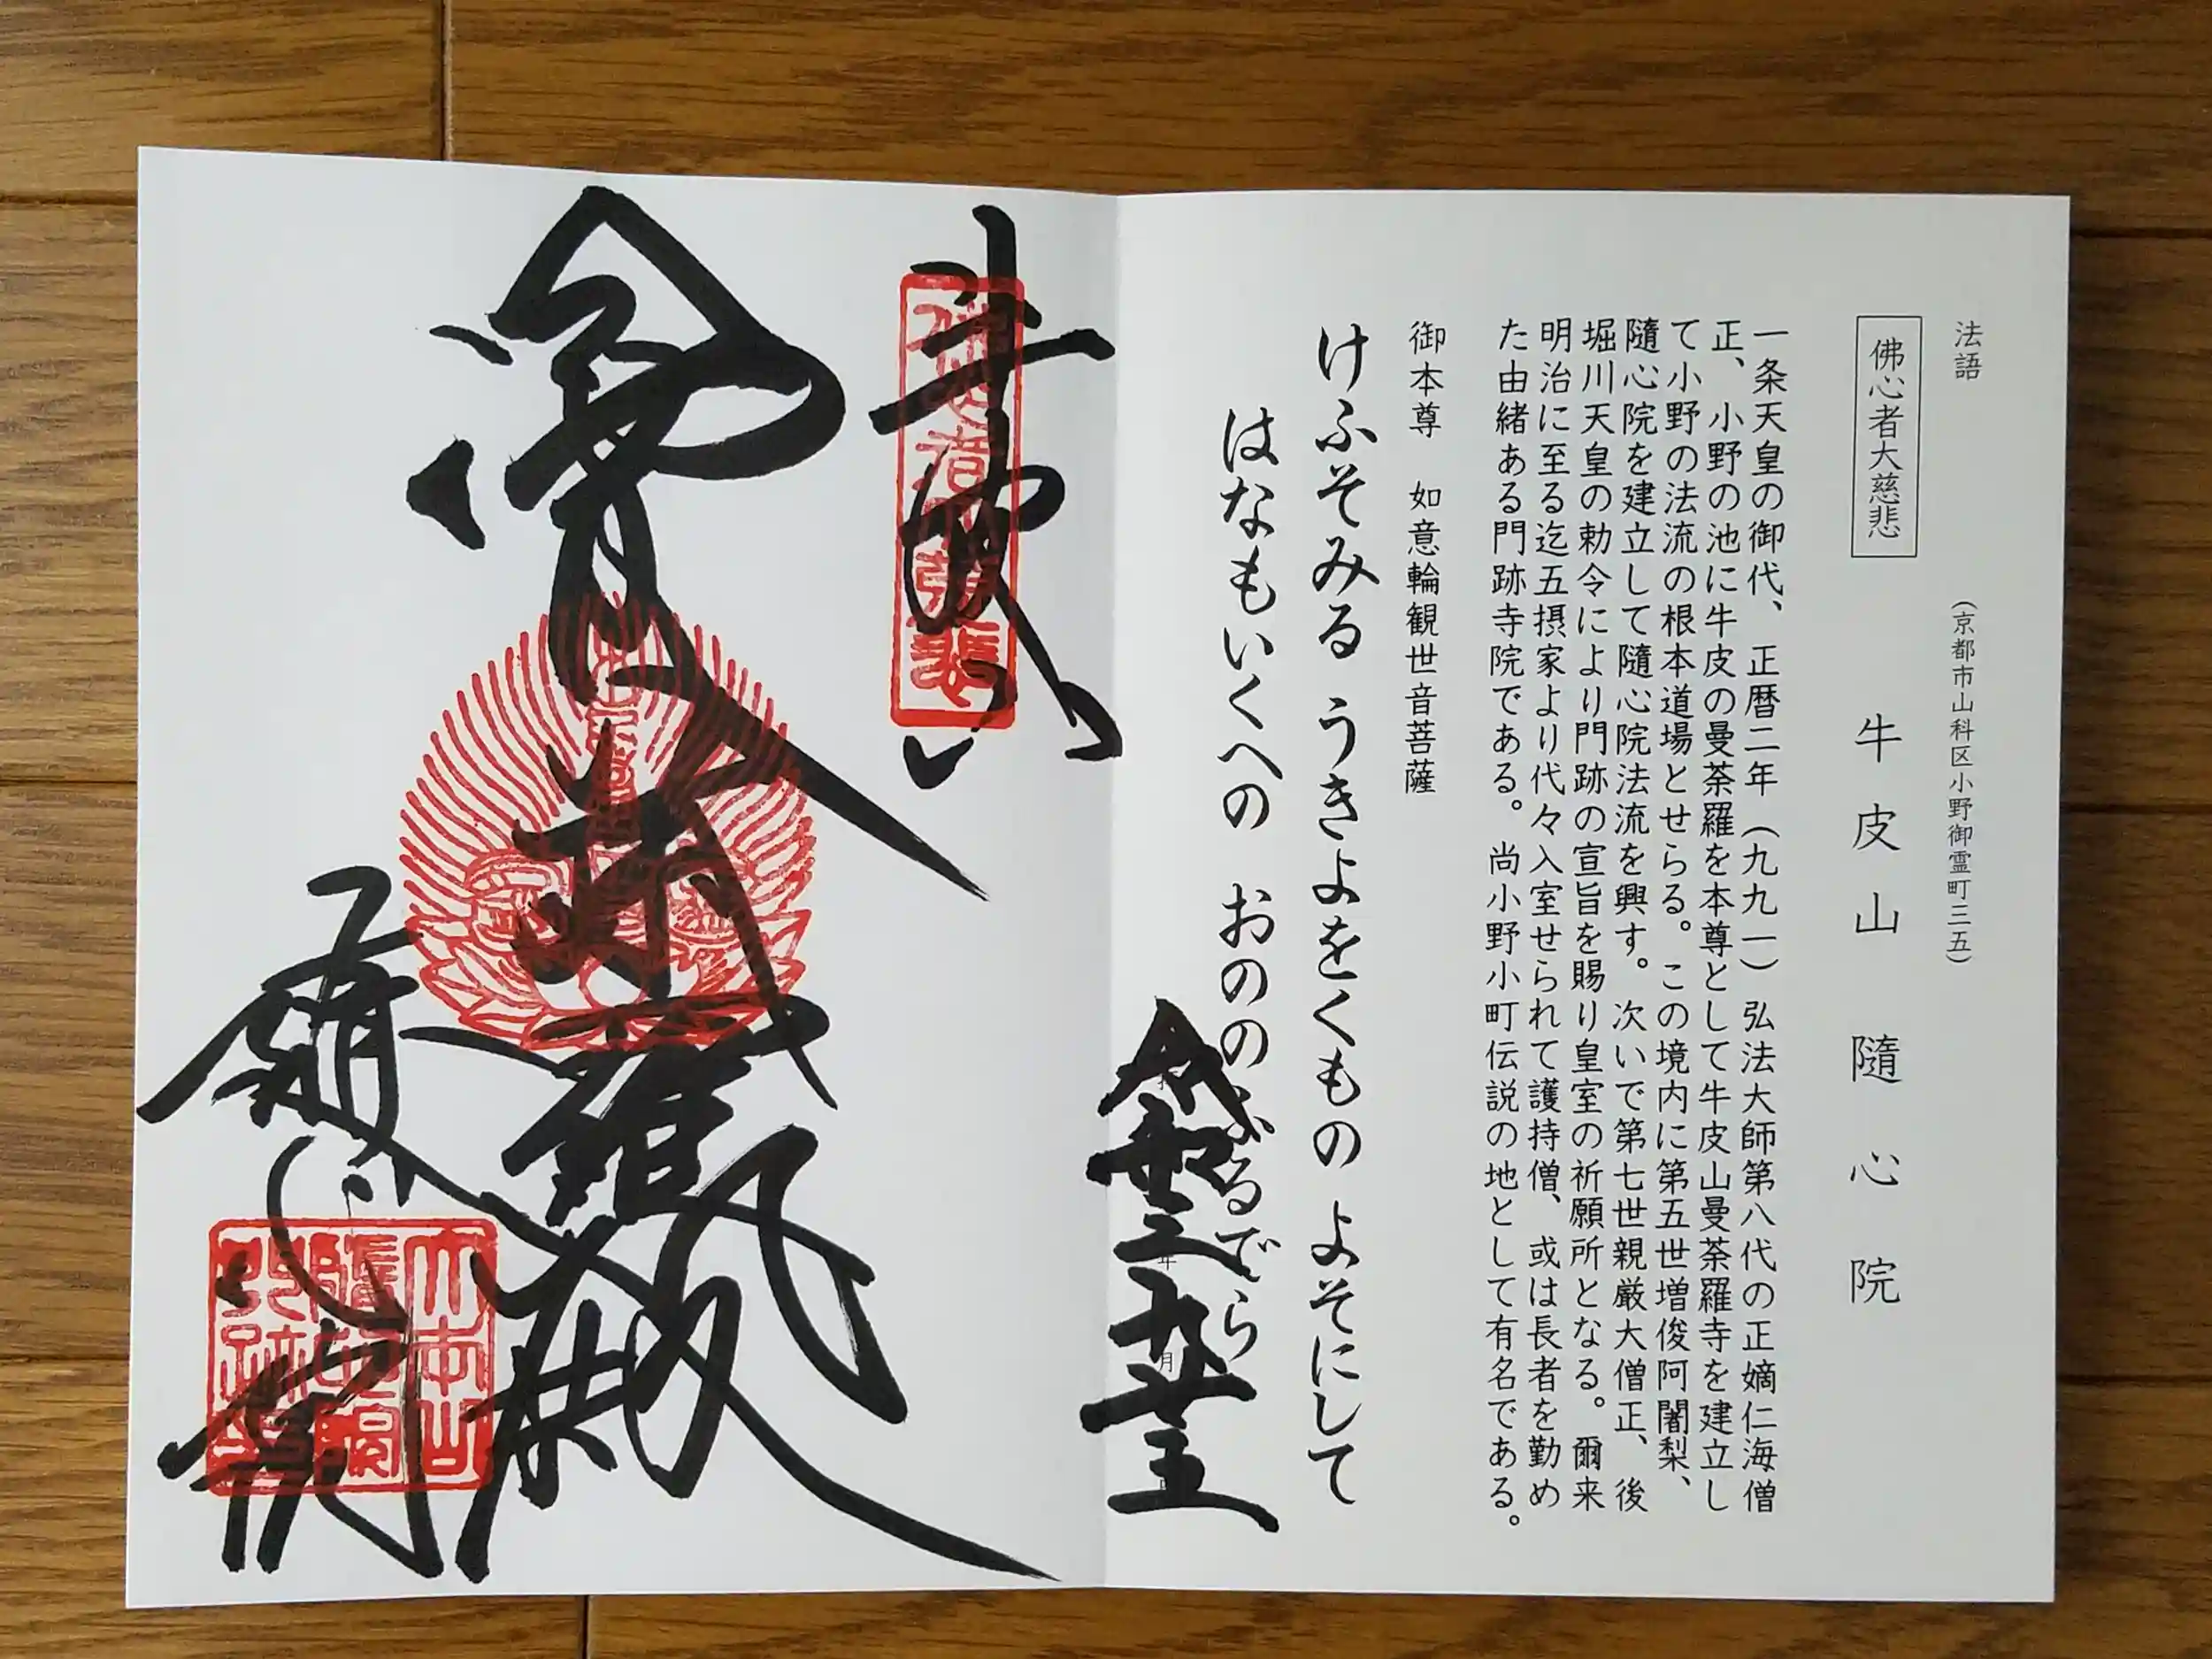 法語
（京都市山科区小野御霊町三五）
佛心者大慈悲
牛皮山 隨心院
一条天皇の御代、正暦二年（九九一）弘法大師第八代の正嫡仁海僧
正、小野の池に牛皮の曼荼羅を本尊として牛皮山曼荼羅寺を建立し
て小野の法流の根本道場とせらる。この境内に第五世増俊阿闍梨、
隨心院を建立して隨心院法流を興す。次いで第七世親厳大僧正、後
堀川天皇の勅令により門跡の宣旨を賜り皇室の祈願所となる。爾来
明治に至る迄五摂家より代々入室せられて護持僧、或は長者を勤め
た由緒ある門跡寺院である。尚小野小町伝説の地として有名である。
御本尊 如意輪観世音菩薩
けふそみる うきよをくもの よそにして
はなもいくへの おののふるでら
令和 三年 九月 廿五
奉拝
佛心者大慈悲
曼荼羅殿
隨心院
大本山
隨心院
門跡